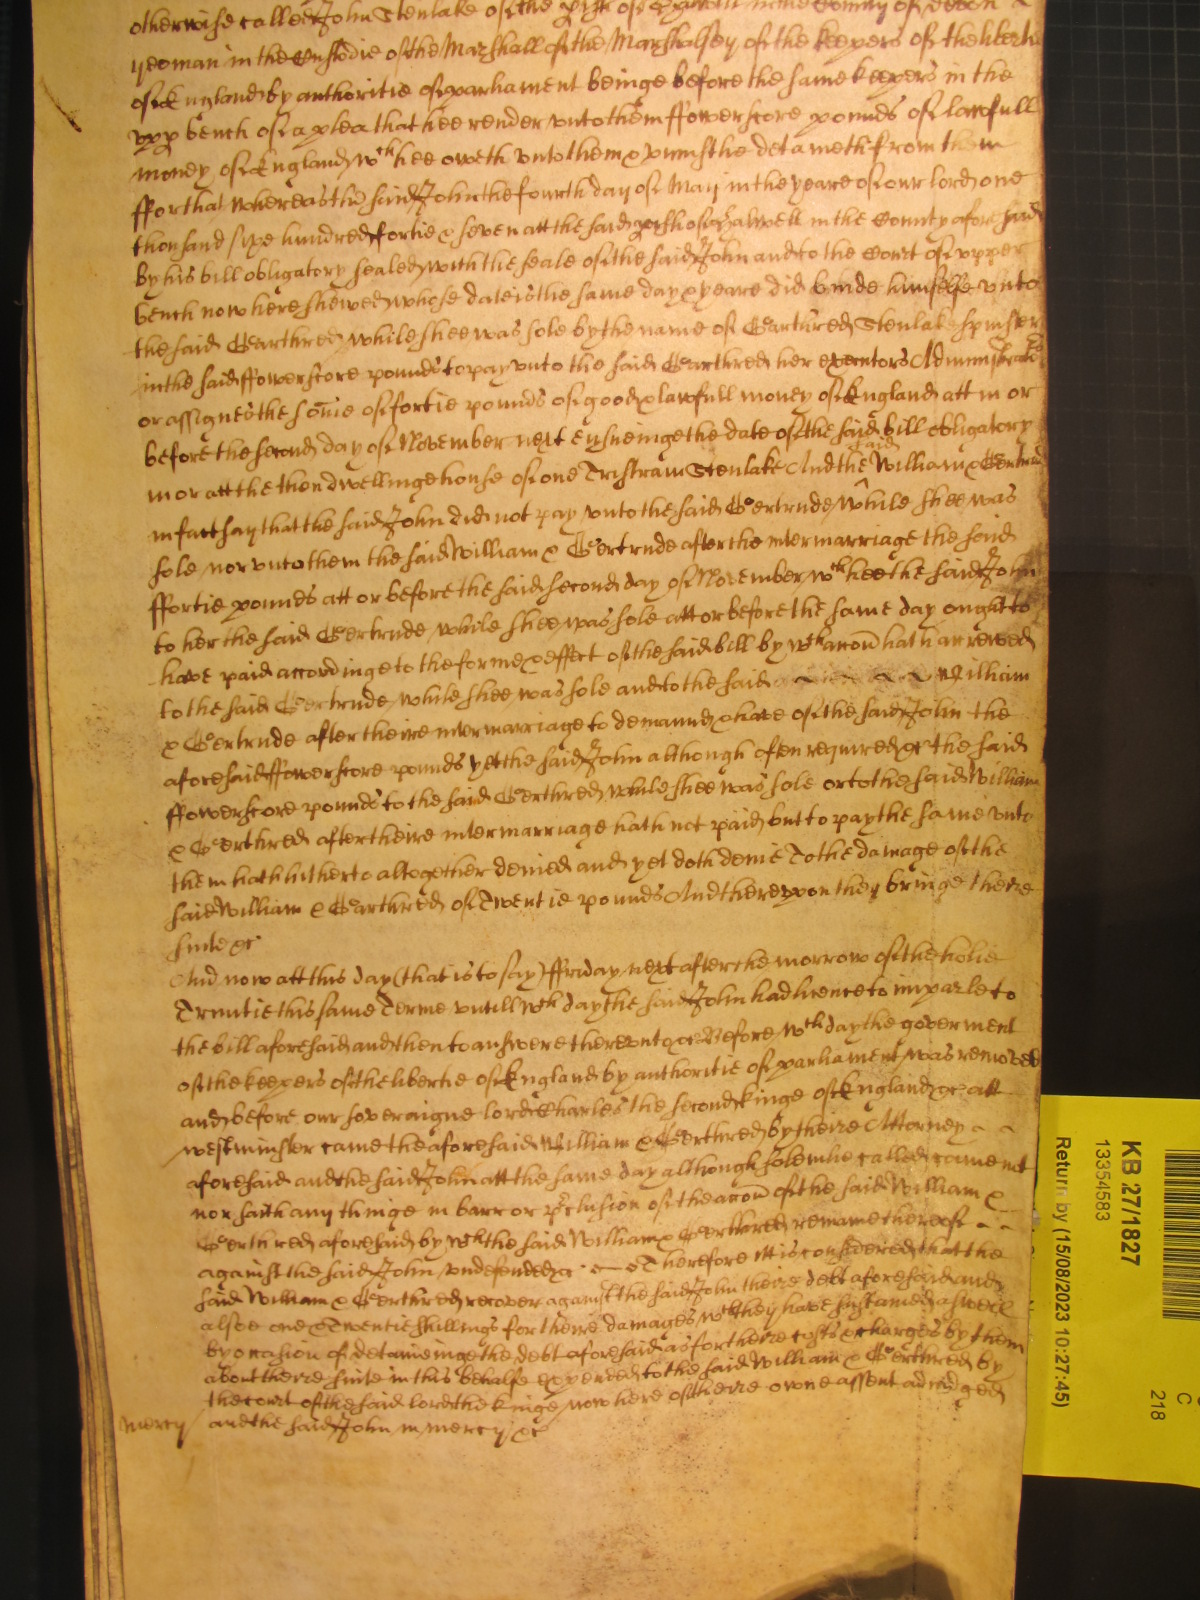 otherwise called John Stenlake of the pish of Halwell in the County of Devon
yeoman in the Custodie of the Marshall of the Marshalsey of the keepers of the libertie
of England by authoritie of parliament beinge before the same keepers in the
upp bench of a plea that hee render unto them ffowerscore pounds of lawfull
money of England wch hee oweth unto them & uniustlie detaineth from them
ffor that whereas the said John the fourth day of May in the yeare of our lord one
thousand sixe hundred fortie & seven att the said pish of Halwell in the County aforesaid
by his bill obligatory sealed with the seale of the said John and to the Court of upper
bench now here shewed whose date is the same day & yeare did binde himselfe unto
the said Garthred while shee was sole by the name of Garthred Stenlake spinster
in the said ffowerscore pounds to pay unto the said Garthred her executors Administrators
or assignes the some of fortie pounds of good & lawfull money of England att in or
before the second day of November next ensueinge the date of the said bill obligatory
in or att the then dwellinge house of one Tristram Stenlake And the said William & Gertrude
in fact say that the said John did not pay unto the said Gertrude while shee was
sole nor unto them the said William & Gertrude after the intermarriage the said
ffortie pounds att or before the said second day of November wch hee the said John
to her the said Gertrude while shee was sole att or before the same day ought to
have paid accordinge to the forme & effect of the said bill by wch accon hath accrewed
to the said Gertrude while shee was sole and to the said William
& Gertrude after theire intermarriage to demaund & have of the said John the
aforesaid ffowerscore pounds yet the said John although often required &c the said
ffowerscore pounds to the said Gerthred while shee was sole or to the said William
& Gerthred after theire intermarriage hath not paid but to pay the same unto
them hath hitherto altogether denied and yet doth denie To the damage of the
said William & Garthred of Twentie pounds And thereupon they bringe theire
suite &c
And now att this day (that is to say) ffriday next after the morrow of the holie
Trinitie this same Terme untill wch day the said John had licence to imparle to
the bill aforesaid and then to answere thereunto &c Before wch day the goverment
of the keepers of the libertie of England by authoritie of parliament was removed
and before our soveraigne lord Charles the second kinge of England &c att
westminster came the aforesaid William & Gerthred by theire Attorney
aforesaid and the said John att the same day although solemlie called came not
nor saith any thinge in barr or pclusion of the accon of the said William &
Gerthred aforesaid by wch the said William & Gerthred remaine thereof
against the said John undefended &c Therefore itt is considered that the
said William & Gerthred recover against the said John theire debt aforesaid and
alsoe one & Twentie shillings for theire damages wch they have sustained aswell
by occasion of detaineinge the debt aforesaid as for theire costs & charges by them
about theire suite in this behalfe expended to the said William & Gerthred by
the court of the said lord the kinge now here of theire owne assent adiudged
mercy and the said John in mercy &c
KB 27/1827
13354583
Return by (15/08/2023 10:27:45)
C
218